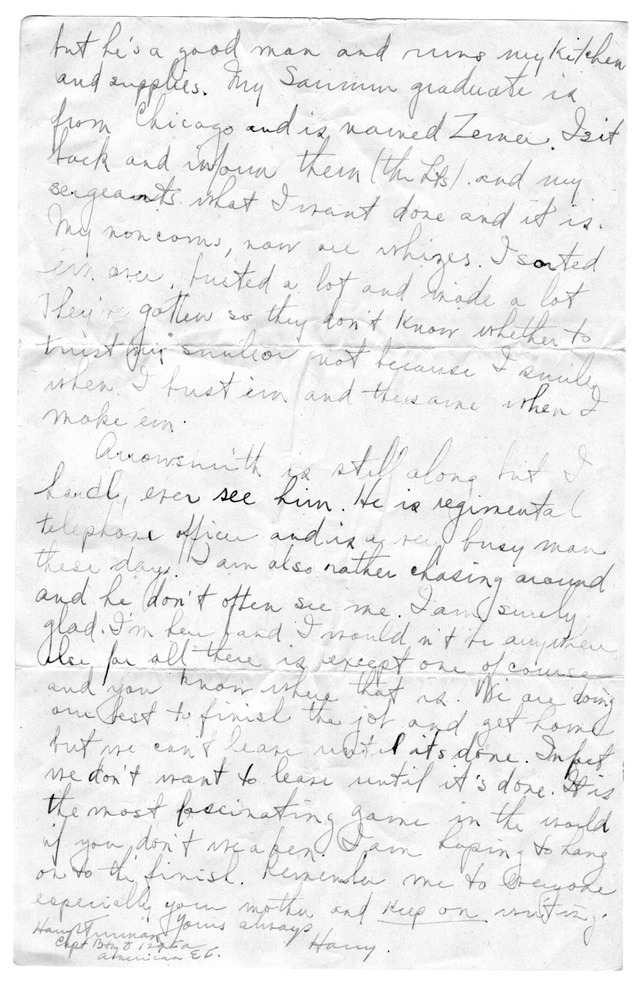 but he's a good man and runs my kitchen
and supplies. My Saumur graduate is
from Chicago and is named Zemer. I sit
back and inform them (the Lts) and my
sergeants what I want done and it is.
My noncoms, now are whizes. I sorted
em over, busted a lot and made a lot
They've gotten so they don't know whether to
trust my smile or not because I smile
when I bust em and the same when I
make em.
Arrowsmith is still along but I
hardly ever see him. He is regimental
telephone officer and is a very busy man
these days. I am also rather chasing around
and he don't often see me. I am surely
glad I'm here and I wouldn't be anywhere
else for all there is except one of course
and you know where that is. We are doing
our best to finish the job and get home
but we can't leave until its done. In fact
we don't want to leave until it's done. It is
the most fascinating game in the world
if you don't weaken. I am hoping to hang
on to the finish. Remember me to everyone
especially your mother and keep on writing.
Yours always
Harry.
Harry S Truman
Capt Bty D 129 FA
American E.F.